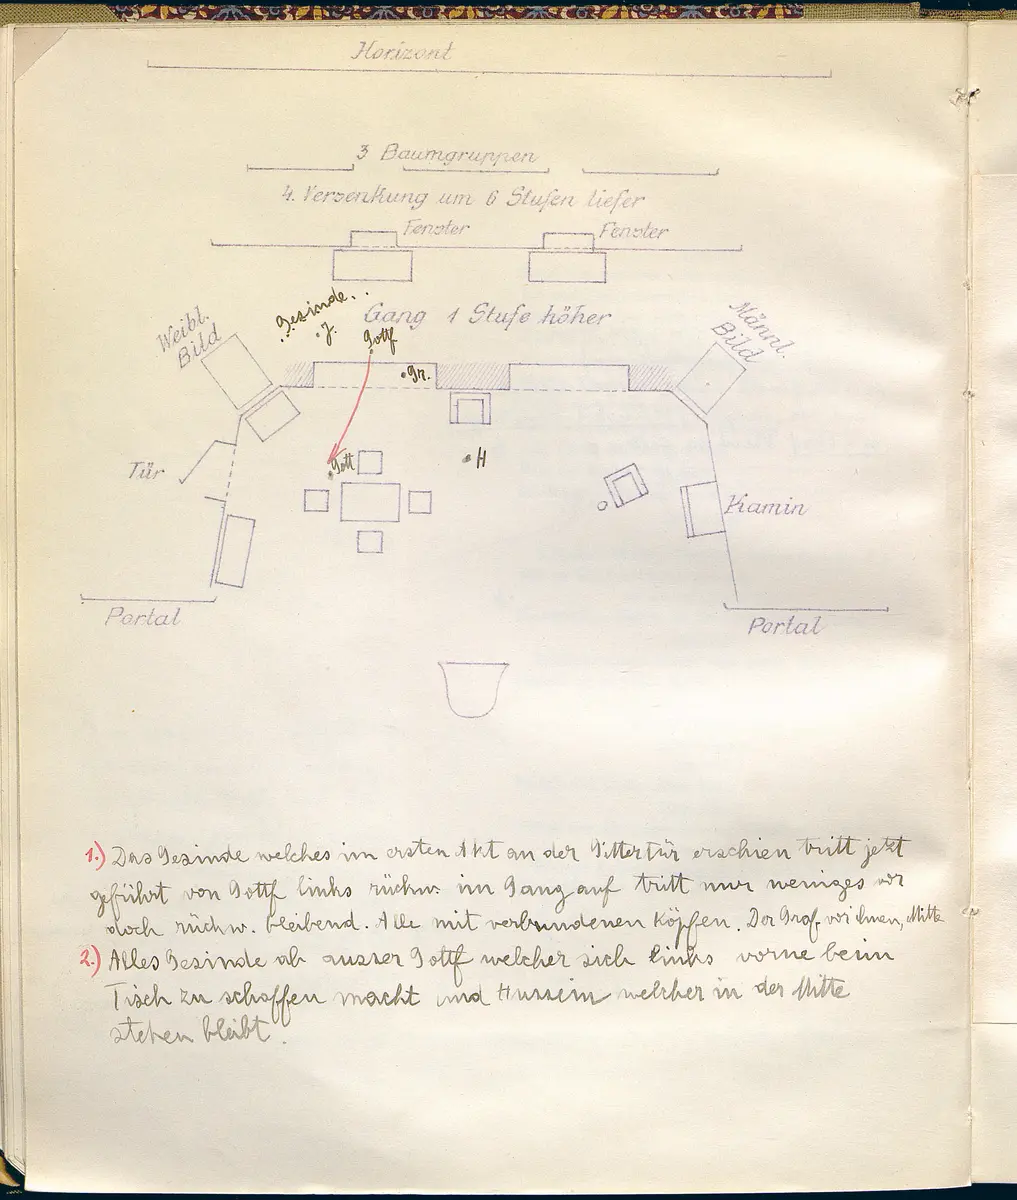 Horizont
3 Baumgruppen
4. Versenkung um 6 Stufen tiefer
Fenster
Fenster
Gesinde...
J.
Gottf
Gang 1 Stufe höher
Weibl.
Bild
Männl.
Bild
Gr.
Gottf
H
Tür
Kamin
Portal
Portal
1.) Das Gesinde welches im ersten Akt an der Gittertür erschien tritt jetzt
geführt von Gottf links rückw. im Gang auf tritt nur weniges vor
doch rückw. bleibend. Alle mit verbundenen Köpfen. Der Graf vor ihnen, Mitte
2.) Alles Gesinde ab ausser Gottf welcher sich links vorne beim
Tisch zu schaffen macht und Hussein welcher in der Mitte
stehen bleibt.